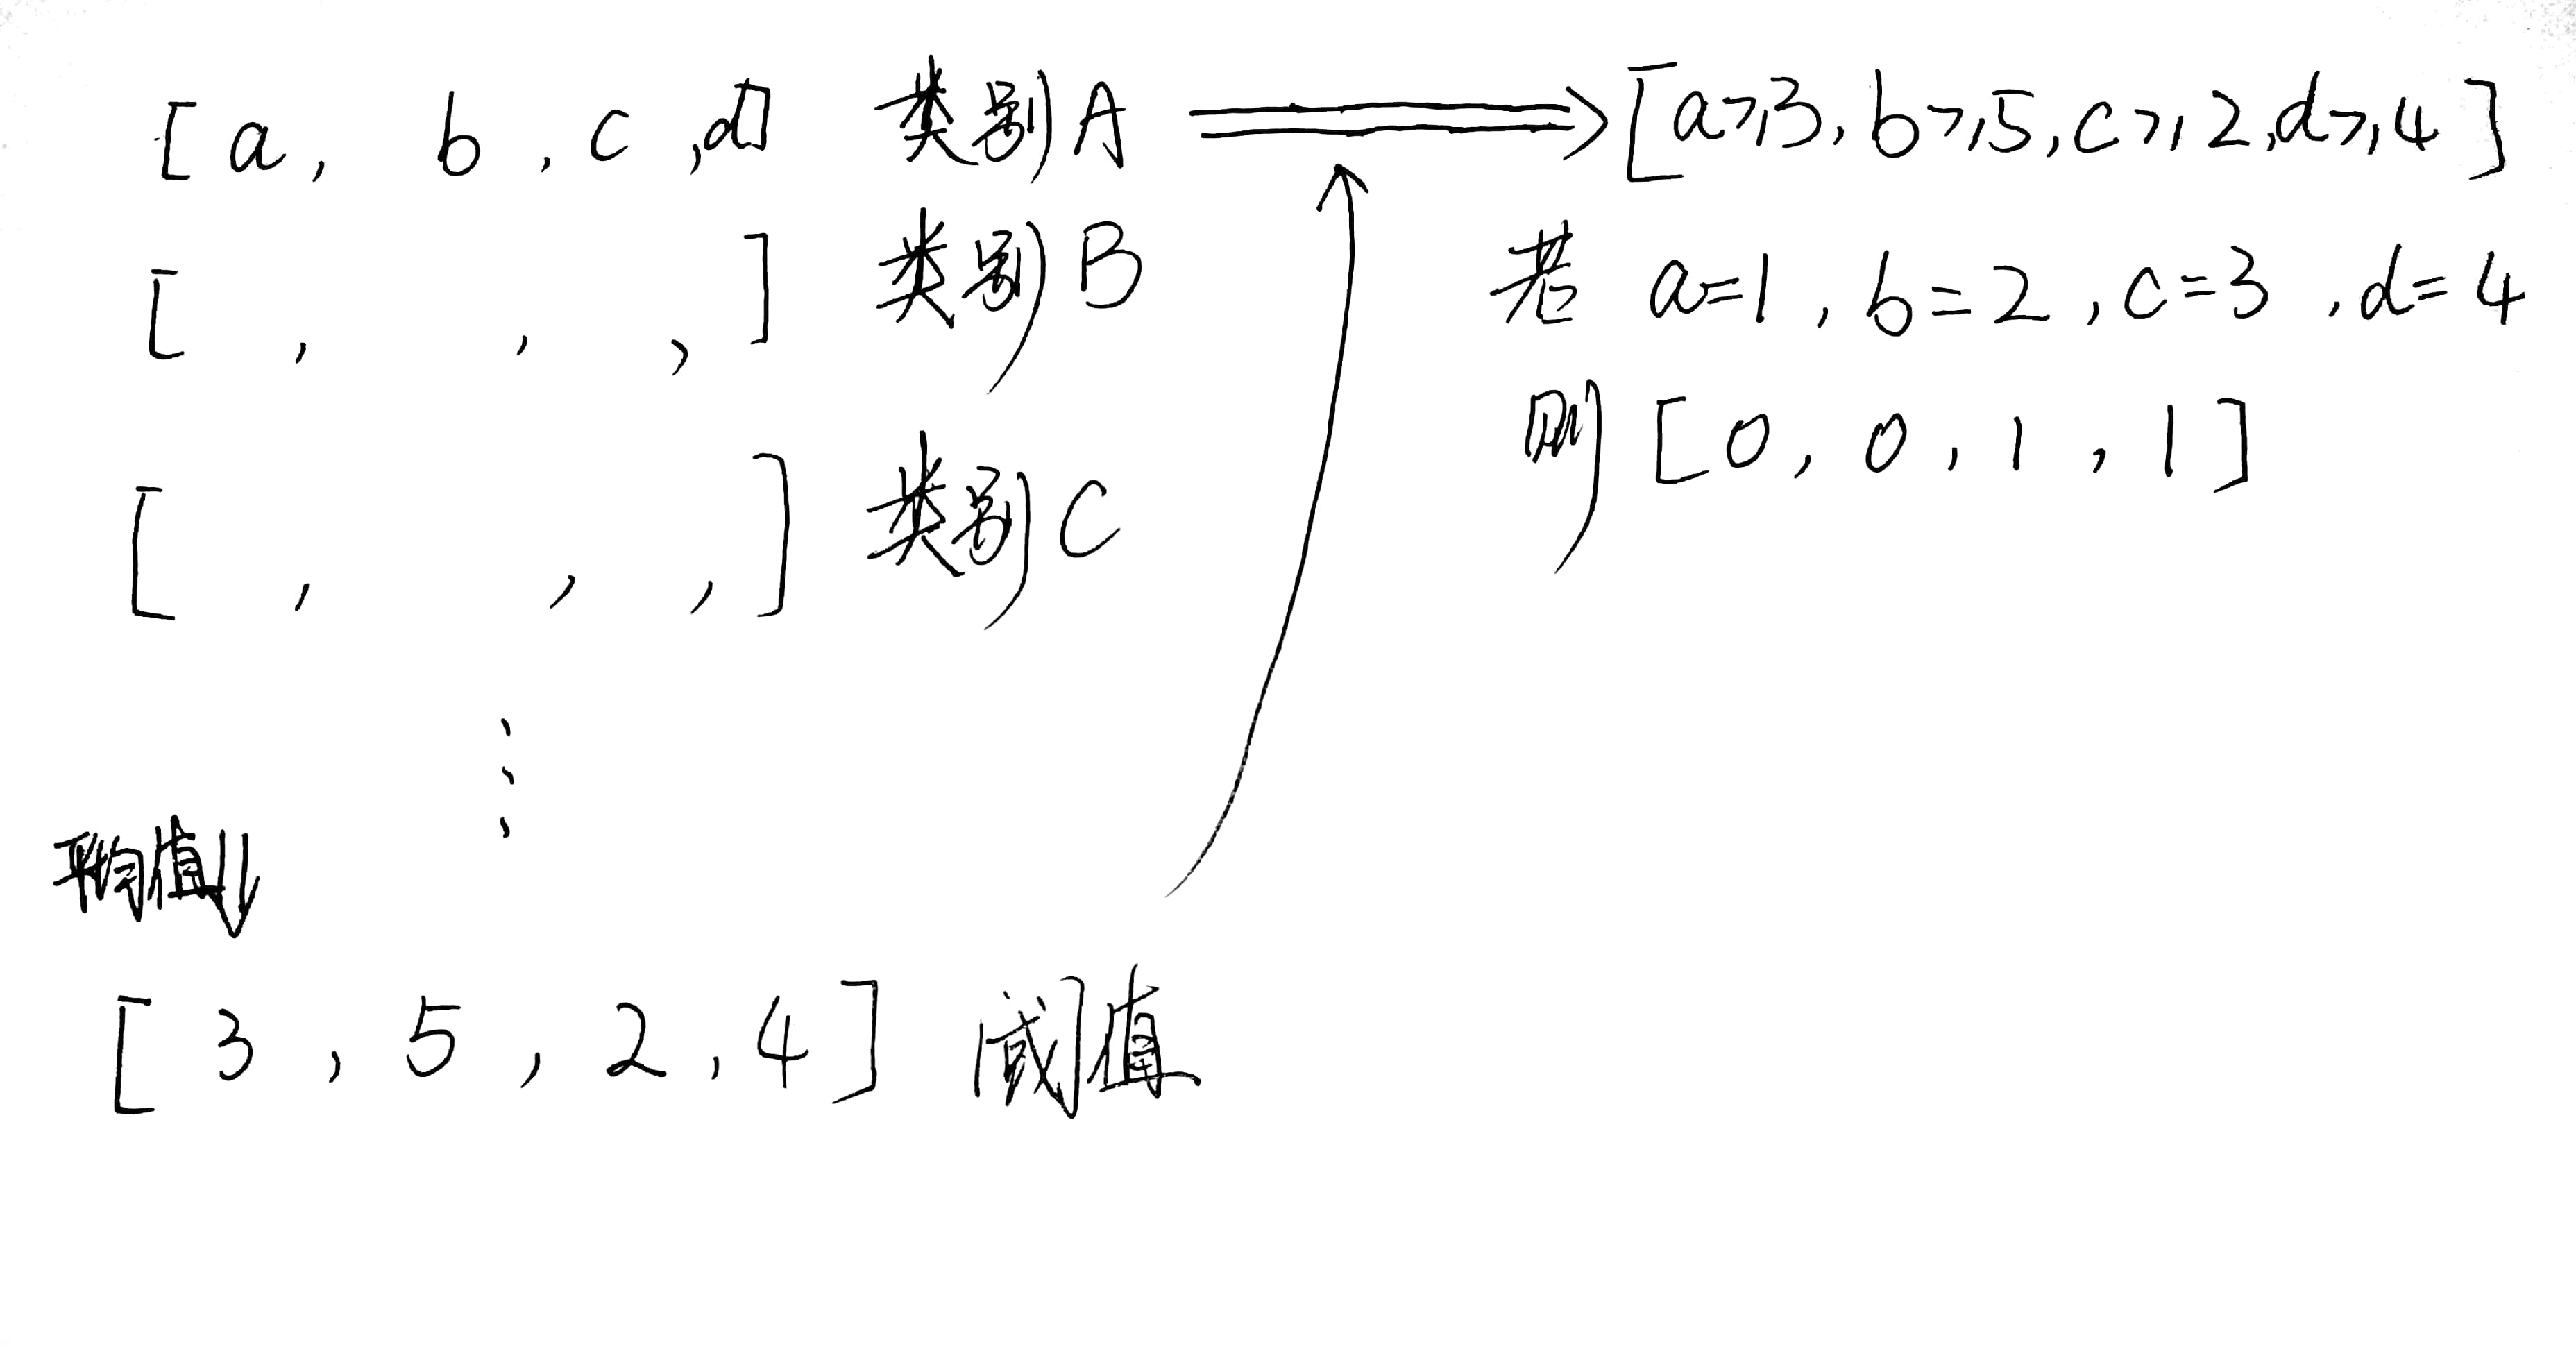 [a, b, c, d] 类别A ⟹ [a⩾3, b⩾5, c⩾2, d⩾4]
[ , , , ] 类别B
若 a=1, b=2, c=3, d=4
则 [0, 0, 1, 1]
[ , , , ] 类别C
⋮
平均值⇓
[3, 5, 2, 4] 阈值